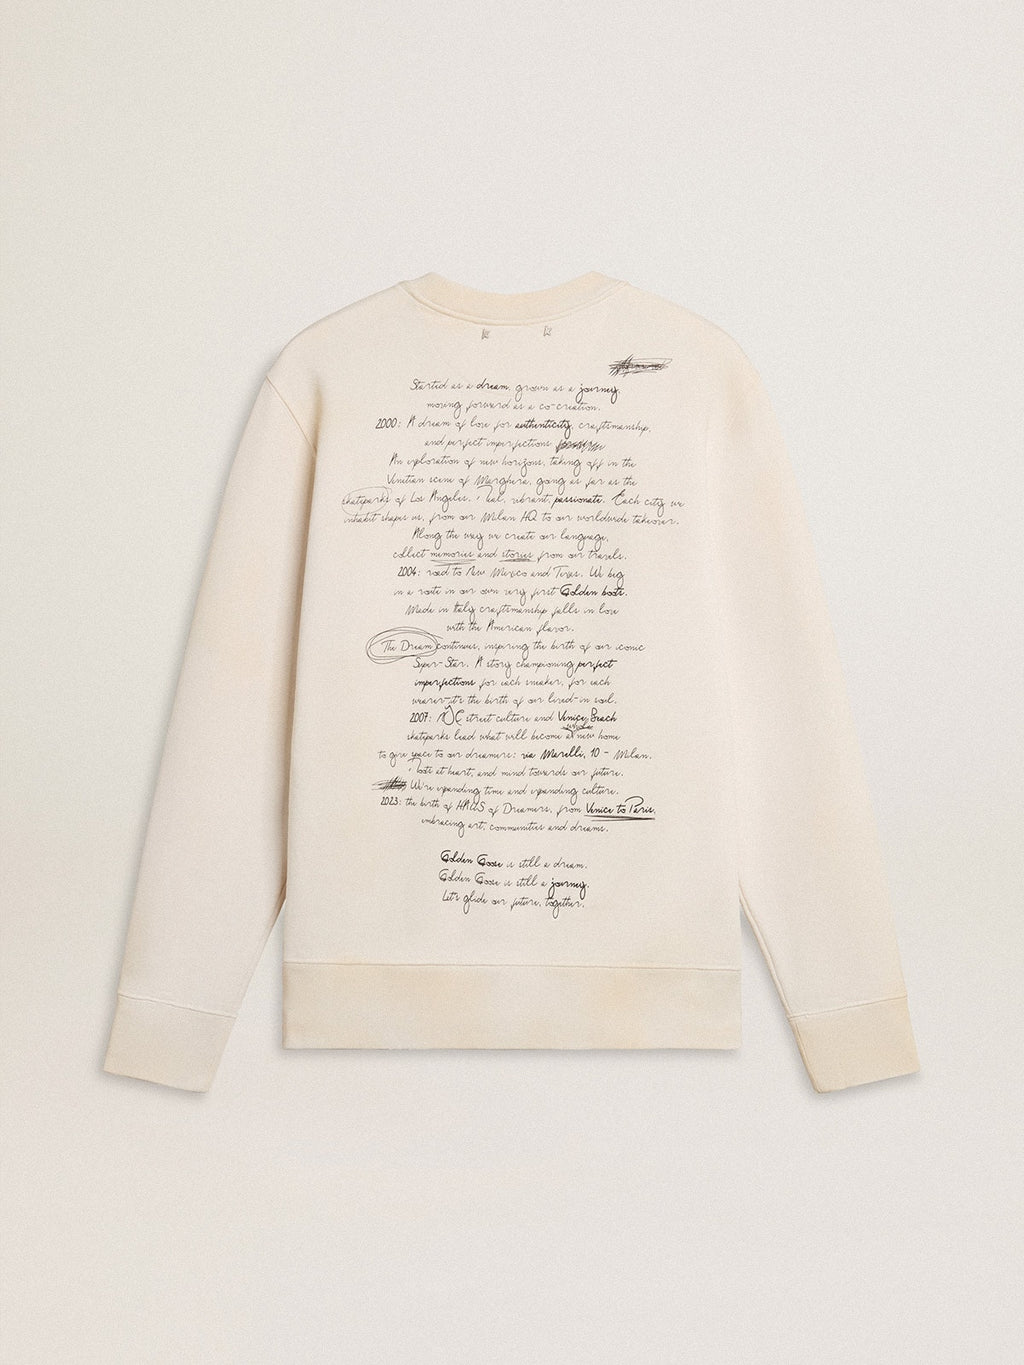 Started as a dream, grown as a journey,
moving forward as a co-creation.
2000: A dream of love for authenticity, craftsmanship,
and perfect imperfections
An exploration of new horizons, taking off in the
Venetian scene of Marghera, going as far as the
skateparks of Los Angeles. Real, vibrant, passionate. Each city we
inhabit shapes us, from our Milan HQ to our worldwide takeover.
Along the way we create our language,
collect memories and stories from our travels.
2004: road to New Mexico and Texas. We beg
in a route in our own very first Golden boots.
Made in Italy craftsmanship falls in love
with the American flavor.
The Dream continues, inspiring the birth of our iconic
Super-Star. A story championing perfect
imperfections for each sneaker, for each
wearer-it's the birth of our lived-in soul.
2007: NYC street culture and Venice Beach
skateparks lead what will become a new home
to give space to our dreamers: via Morelli, 10 - Milan.
Roots at heart, and mind towards our future.
We're expanding time and expanding culture.
2023: the birth of HAUS of Dreamers, from Venice to Paris,
embracing art, communities and dreams.
Golden Goose is still a dream.
Golden Goose is still a journey.
Let's glide our future, together.